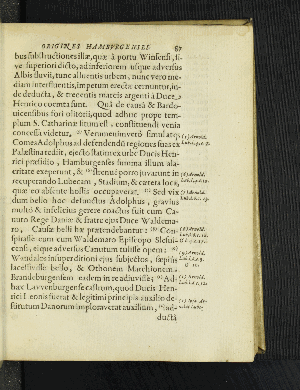 ORIGINES HAMBURGENSES 87
bus substructiones istæ, quæ à portu Winsensi, si-
ve superiori dicto, ad inferiorem usque adversus
Albis fluvii, tunc alluentis urbem, nunc vero me-
diam interfluentis, impetum erectæ cernuntur, in-
de deducta, & trecentis marcis argenti à Duce
Henrico coemta sunt. Quâ de causâ & Bardo-
vicensibus fori olitorii, quod adhuc prope tem-
plum S. Catharinæ hinc est, constituendi venia
concessa videtur. Verumenimvero simul atque
Comes Adolphus ad defendendū regiones suas ex
Palæstina rediit, ejecto statim ex urbe Ducis Hen-
rici præsidio, Hamburgenses summa illum ala-
critate exceperunt, & strenuè porro juvarunt in
recuperando Lubecam, Stadium, & cætera loca,
quæ eo absente hostis occupaverat. Sed vix
dum bello hoc defunctus Adolphus, gravius
multò & infelicius gerere coactus fuit cum Ca-
nuto Rege Daniæ & fratre ejus Duce Waldema-
ro. Causæ belli hæ prætendebantur: Con-
spirasse eum cum Waldemaro Episcopo Slesvi-
censi, eique adversus Canutum tulisse opem:
Wandalis insuper ditioni ejus subjectos, sæpius
lacessivisse bello, & Othonem Marchionem
Brandeburgensem eadem in re adjuvisse: Ad-
hæc Lavvenburgense castrum, quod Ducis Hen-
rici Leonis fuerat & legitimi principis auxilio de-
stitutum Danorum imploraverat auxilium,
ducta